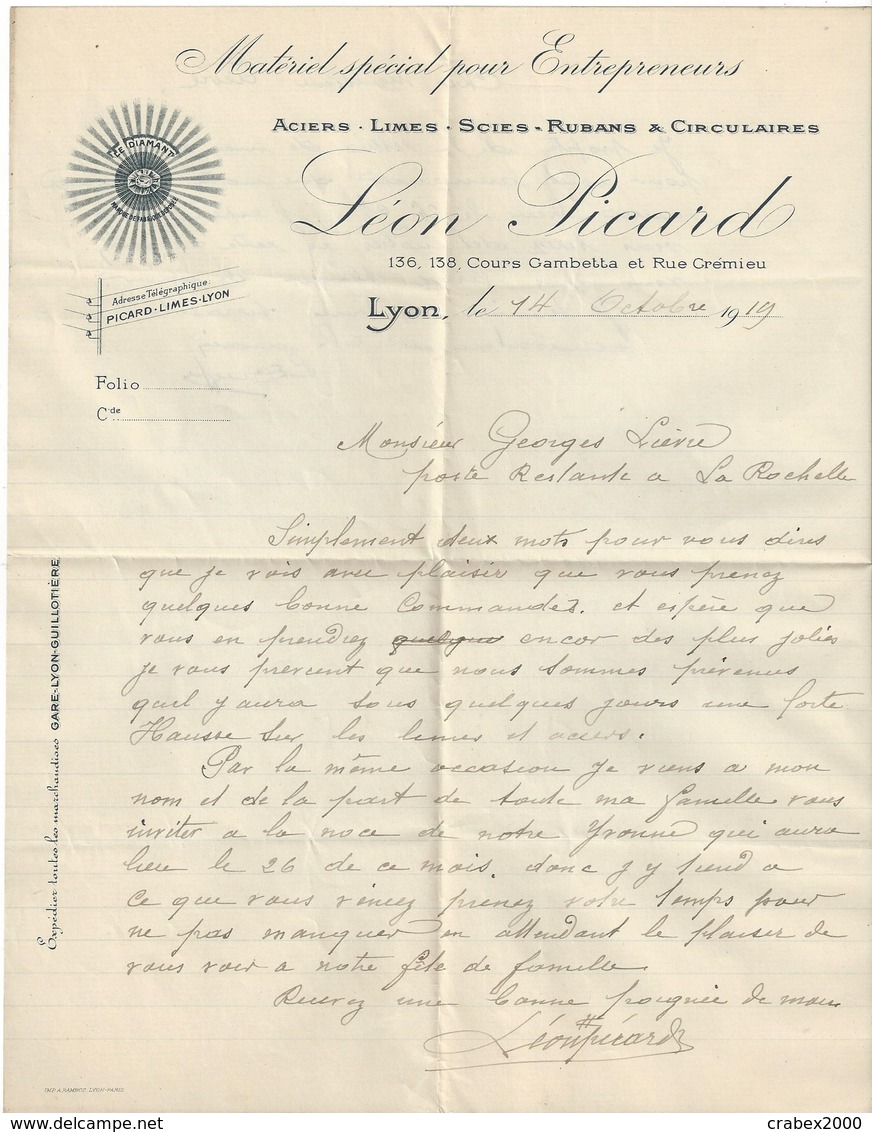 Matériel spécial pour Entrepreneurs
Aciers · Limes · Scies - Rubans & Circulaires
LE DIAMANT
MARQUE DE FABRIQUE DÉPOSÉE
Léon Picard
136, 138, Cours Gambetta et Rue Crémieu
Adresse Télégraphique:
PICARD-LIMES-LYON
Lyon, le 14 Octobre 1919
Folio
Cde
Monsieur Georges Lièvre
poste Restante a La Rochelle
Simplement deux mots pour vous dires
que je vois avec plaisir que vous prenez
quelques bonne Commandes. et espère que
vous en prendrez quelque encor des plus jolies
je vous previent que nous sommes prévenus
quel y aura sous quelques jours une forte
Hausse sur les limes et aciers.
Par la même occasion je viens a mon
nom et de la part de toute ma famille vous
inviter a la noce de notre Yvonne qui aura
lieu le 26 de ce mois. donc j y tiend a
ce que vous veniez prenez votre temps pour
ne pas manquer en attendant le plaisir de
vous voir a notre fête de famille
Recevez une bonne poignée de main
Léon Picard
Expédier toutes les marchandises GARE-LYON-GUILLOTIÈRE
IMP. A. RAMBOZ. LYON-PARIS
crabex2000